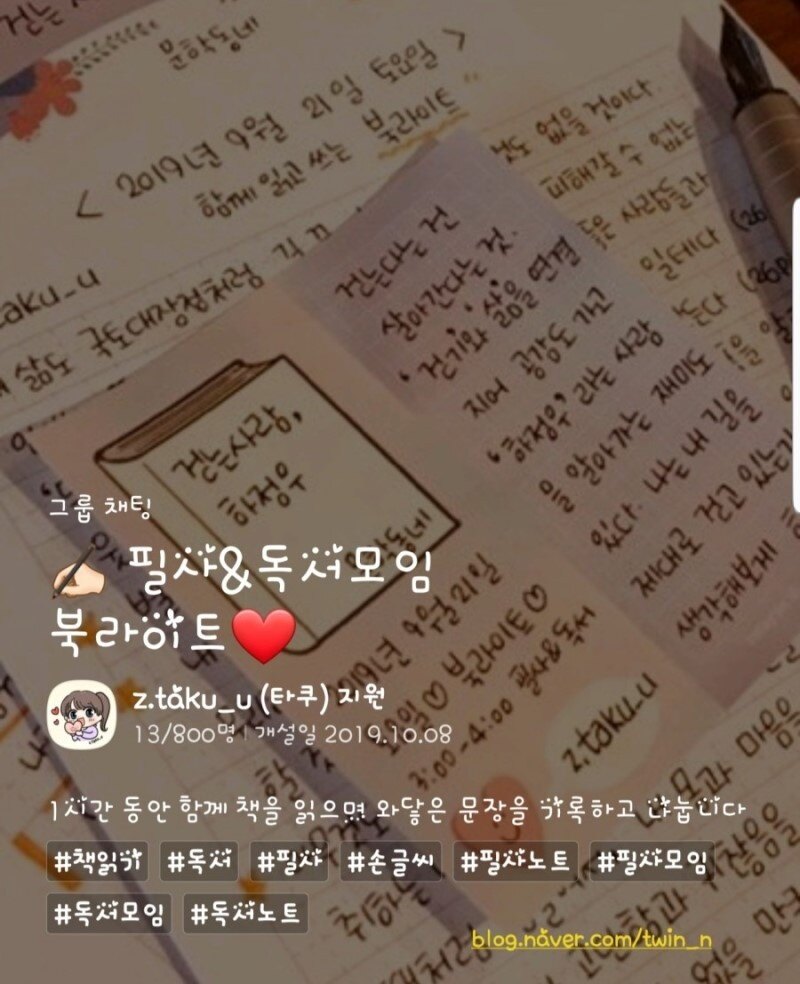 문학동네
< 2019년 9월 21일 토요일 >
함께 읽고 쓰는 북라이트
것도 없을 것이다.
피해갈 수 없는
사람들과
일테다
z.taku_u
삶도 국토대장정처럼
걷는다는 건
살아간다는 것.
'걷기'와 '삶'을 연결
지어 공감도 가고
'하정우'라는 사람
을 알아가는 재미도
있다. 나는 내 길을
제대로 걷고 있는가
생각해보게
걷는사람,
하정우
그룹 채팅
✍🏻 필사&독서모임
북라이트❤️
9월 21일
요일♡ 북라이트♡
3:00-4:00 필사&독서
z.taku_u
z.taku_u (타쿠) 지원
13/800명 | 개설일 2019.10.08
1시간 동안 함께 책을 읽으며 와닿은 문장을 기록하고 나눕니다
#책읽기 #독서 #필사 #손글씨 #필사노트 #필사모임
#독서모임 #독서노트
blog.naver.com/twin_n